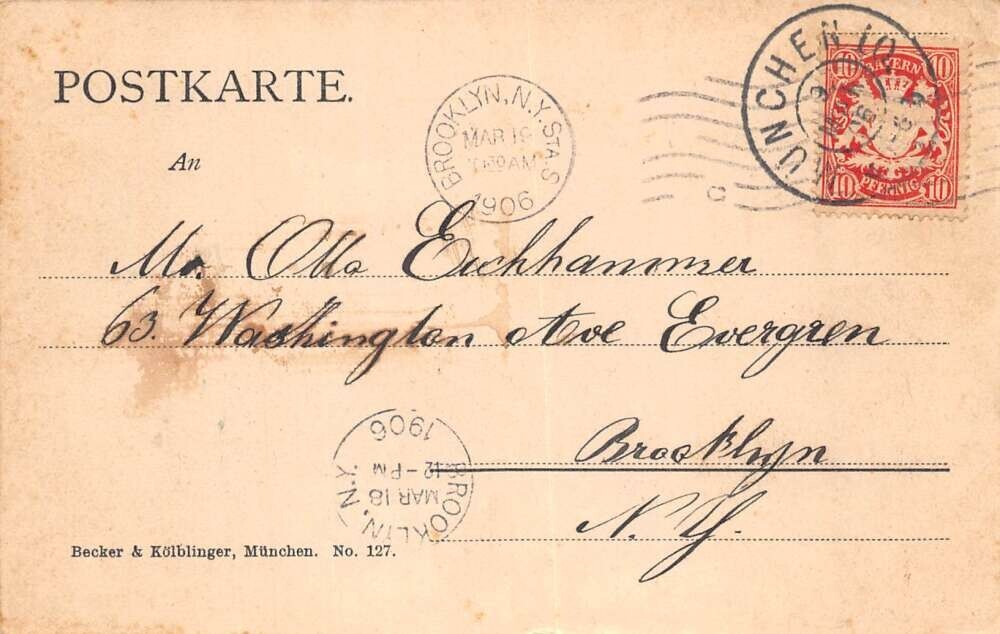 POSTKARTE.
An
BROOKLYN, N.Y. STA. S
MAR 19
AM
1906
MÜNCHEN
BAYERN
10 10
10 PFENNIG 10
Mr. Otto Euchhammer
63. Washington Ave Evergren
Brooklyn
N. Y.
BROOKLYN, N.Y.
MAR 18
12 - PM
1906
Becker & Kölblinger, München. No. 127.